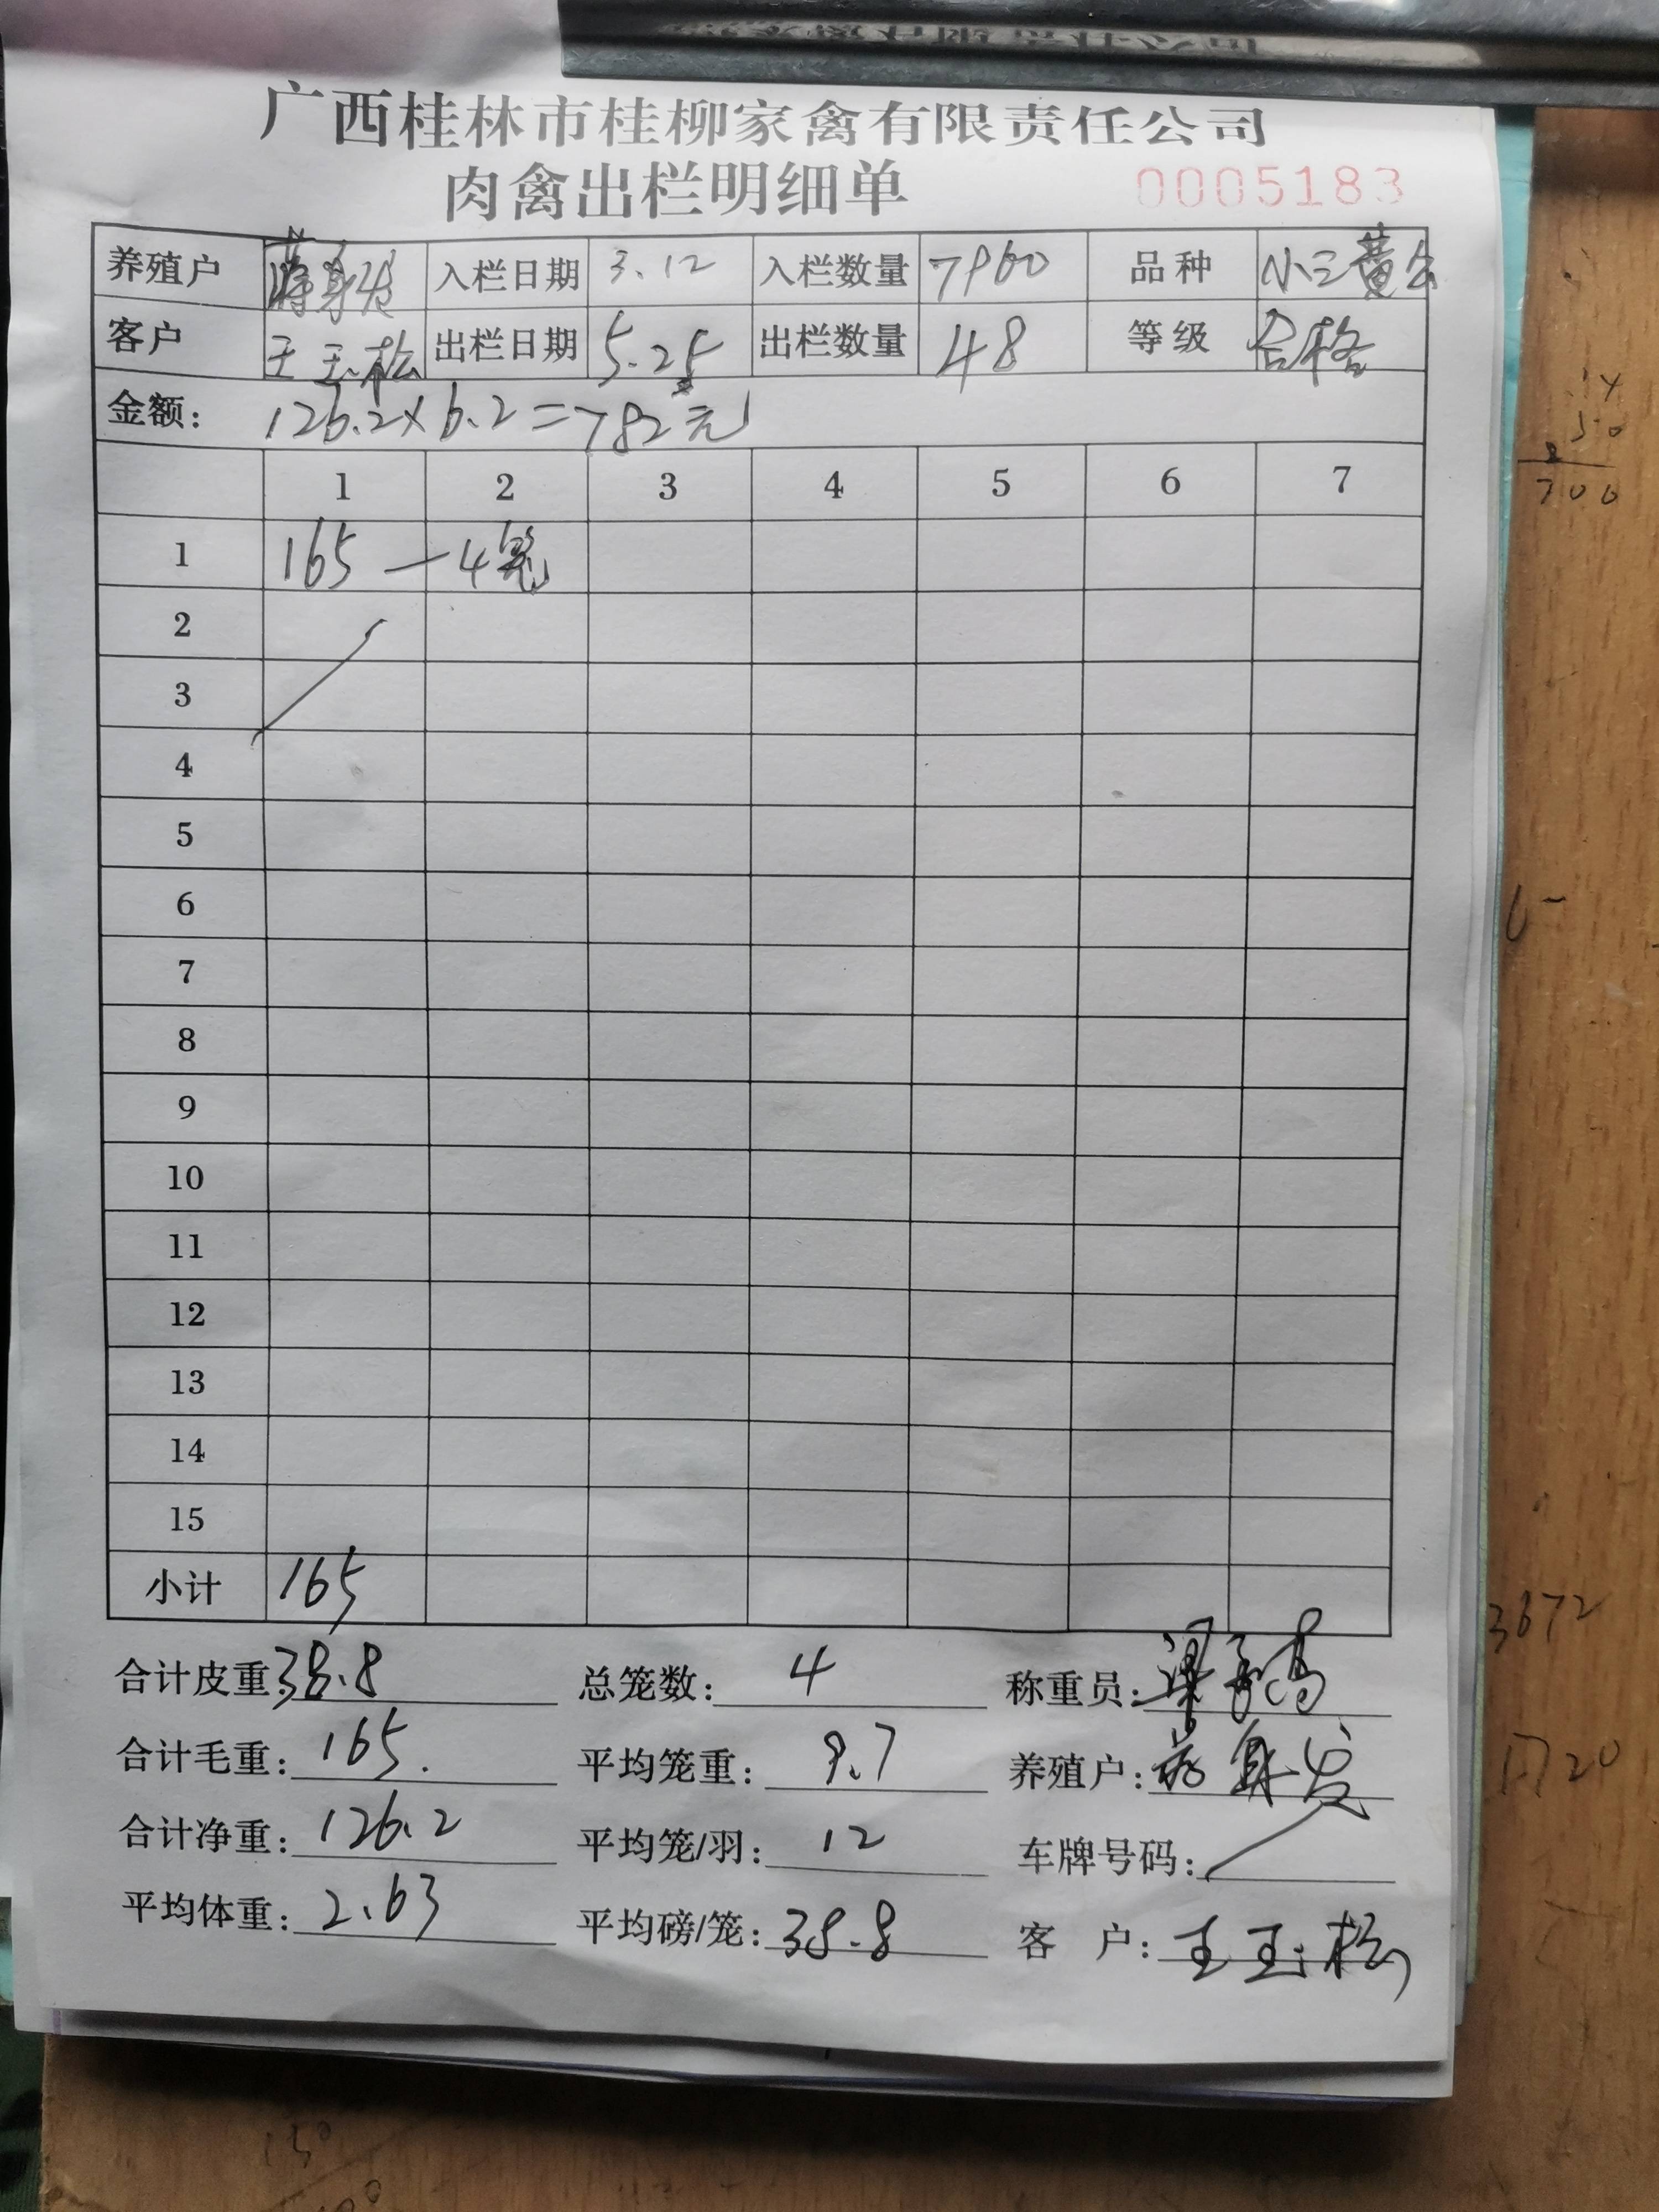 广西桂林市桂柳家禽有限责任公司
肉禽出栏明细单 0005183
养殖户 蒋身发 入栏日期 3.12 入栏数量 7960 品种 小三黄公
客户 王玉松 出栏日期 5.25 出栏数量 48 等级 合格
金额: 126.2×6.2=782元
1 2 3 4 5 6 7
1 165 — 4笼
2
3
4
5
6
7
8
9
10
11
12
13
14
15
小计 165
合计皮重: 38.8 总笼数: 4 称重员: 梁
合计毛重: 165. 平均笼重: 9.7 养殖户: 蒋身发
合计净重: 126.2 平均笼/羽: 12 车牌号码:
平均体重: 2.63 平均磅/笼: 38.8 客 户: 王玉松
14
50
700
3672
1720
150